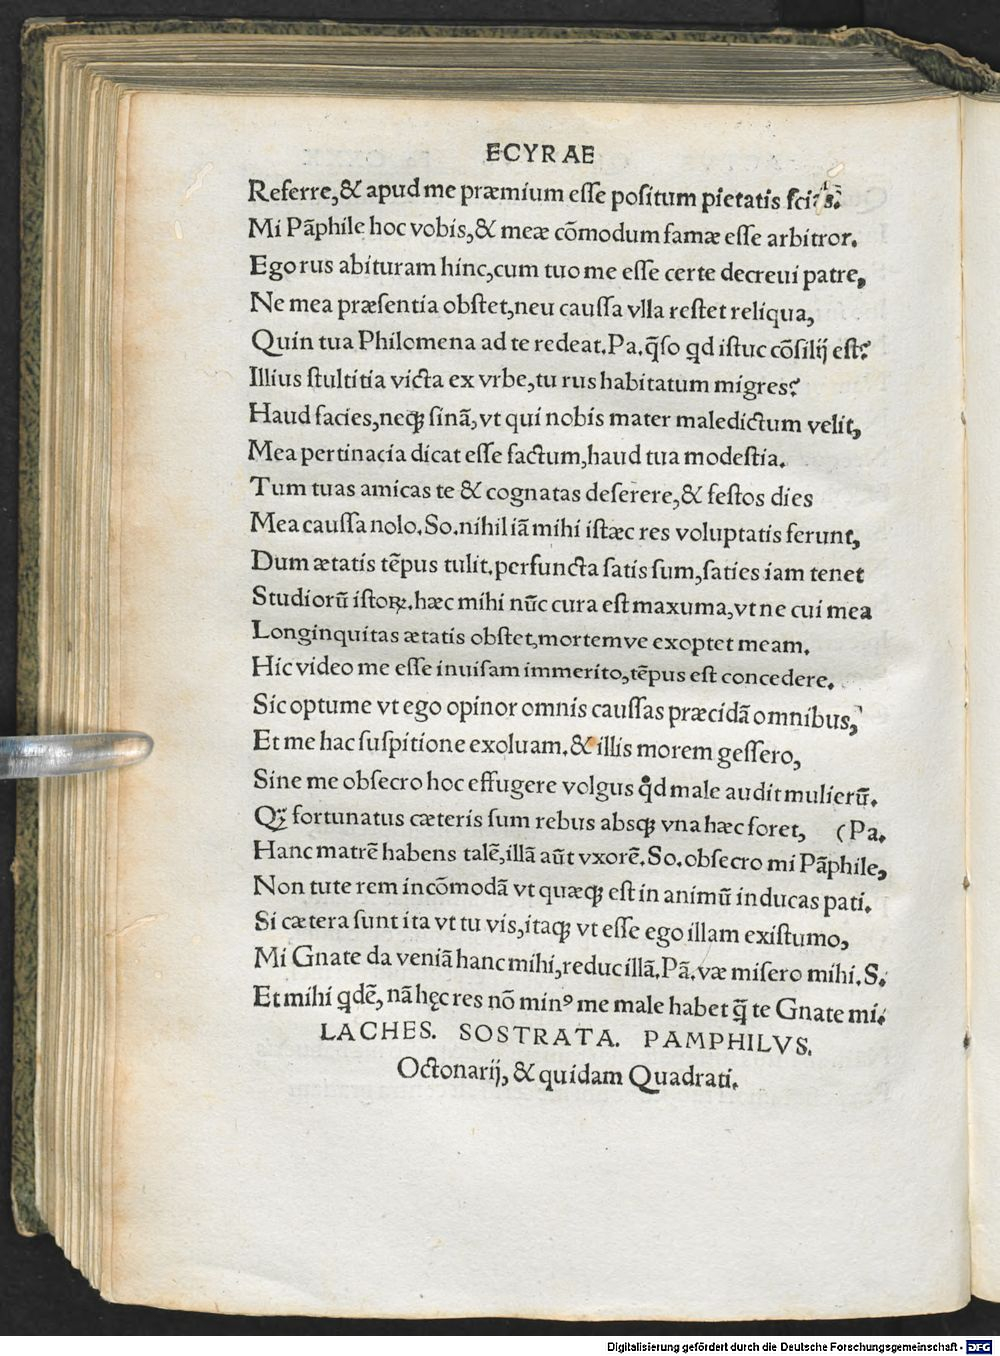 ECYRAE
Referre,& apud me præmium esse positum pietatis
Mi Pãphile hoc vobis,& meæ cõmodum famæ esse arbitror.
Ego rus abituram hinc,cum tuo me esse certe decreui patre,
Ne mea præsentia obstet,neu caussa vlla restet reliqua,
Quin tua Philomena ad te redeat.Pa.q̃so qd istuc cõsilij est?
Illius stultitia victa ex vrbe,tu rus habitatum migres?
Haud facies,neqꝫ sinã,vt qui nobis mater maledictum velit,
Mea pertinacia dicat esse factum,haud tua modestia.
Tum tuas amicas te & cognatas deserere,& festos dies
Mea caussa nolo.So.nihil iã mihi istæc res voluptatis ferunt,
Dum ætatis tẽpus tulit.perfuncta satis sum,saties iam tenet
Studiorũ istoꝝ.hæc mihi nũc cura est maxuma,vt ne cui mea
Longinquitas ætatis obstet,mortemve exoptet meam.
Hic video me esse inuisam immerito,tẽpus est concedere.
Sic optume vt ego opinor omnis caussas præcidã omnibus,
Et me hac suspitione exoluam.& illis morem gessero,
Sine me obsecro hoc effugere volgus qd male audit mulierũ.
Qꝫ fortunatus cæteris sum rebus absqꝫ vna hæc foret, (Pa.
Hanc matrẽ habens talẽ,illã aũt vxorẽ.So.obsecro mi Pãphile,
Non tute rem incõmodã vt quæqꝫ est in animũ inducas pati.
Si cætera sunt ita vt tu vis,itaqꝫ vt esse ego illam existumo,
Mi Gnate da veniã hanc mihi,reduc illã.Pã.væ misero mihi.S.
Et mihi qdẽ, nã hęc res nõ minꝰ me male habet q̃ te Gnate mi.
LACHES. SOSTRATA. PAMPHILVS.
Octonarij, & quidam Quadrati.
Digitalisierung gefördert durch die Deutsche Forschungsgemeinschaft - DFG